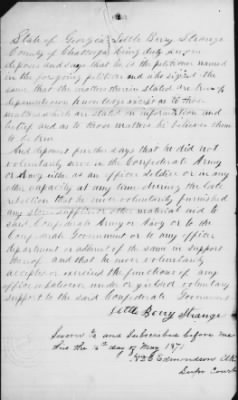 State of Georgia } Little Berry Strange
County of Chattooga } being duly sworn
deposes and says that he is the petitioner named
in the foregoing petition and who signed the
same that the matters therein stated are true of
deponents own knowledge except as to those
matters which are stated on information and
belief and as to those matters he believes them
to be true
And deponent further says that he did not
voluntarily serve in the Confederate Army
or Navy either as an officer soldier or in any
other capacity at any time during the late
rebellion that he never voluntarily furnished
any stores supplies or other material aid to
said Confederate Army or Navy or to the
Confederate Government or to any officer
department or adherent of the same in support
thereof and that he never voluntarily
accepted or exercised the functions of any
office whatsoever under or yielded voluntary
support to the said Confederate Government
Little Berry Strange
Sworn to and subscribed before me
this the day of May 1871
Edmondson Clk
Supr Court